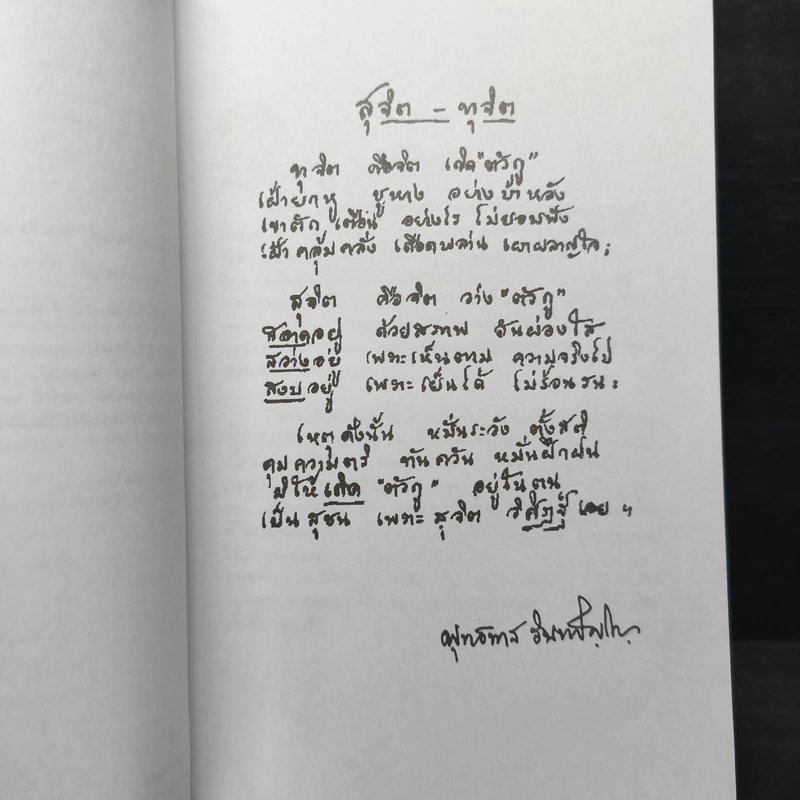 สุจิต – ทุจิต
ทุจิต คือจิต เกิด "ตัวกู"
เฝ้ายกหู ชูหาง อย่างบ้าหลัง
เขาตัก เตือน อย่างไร ไม่ยอมฟัง
เฝ้าคลุ้มคลั่ง เดือดพล่าน เผาผลาญใจ ;
สุจิต คือจิต ว่าง "ตัวกู"
สอาดอยู่ ด้วยสภาพ อันผ่องใส
สว่างอยู่ เพราะเห็นตาม ความจริงไป
สงบอยู่ เพราะเย็นได้ ไม่ร้อนรน :
เหตุดังนั้น หมั่นระวัง ตั้งสติ
คุมความตริ ทันควัน หมั่นฝึกฝน
มิให้เกิด "ตัวกู" อยู่ในตน
เป็นสุชน เพราะสุจิต วิศิฏฐ์ เอย ฯ
พุทธทาส อินทปัญโญ